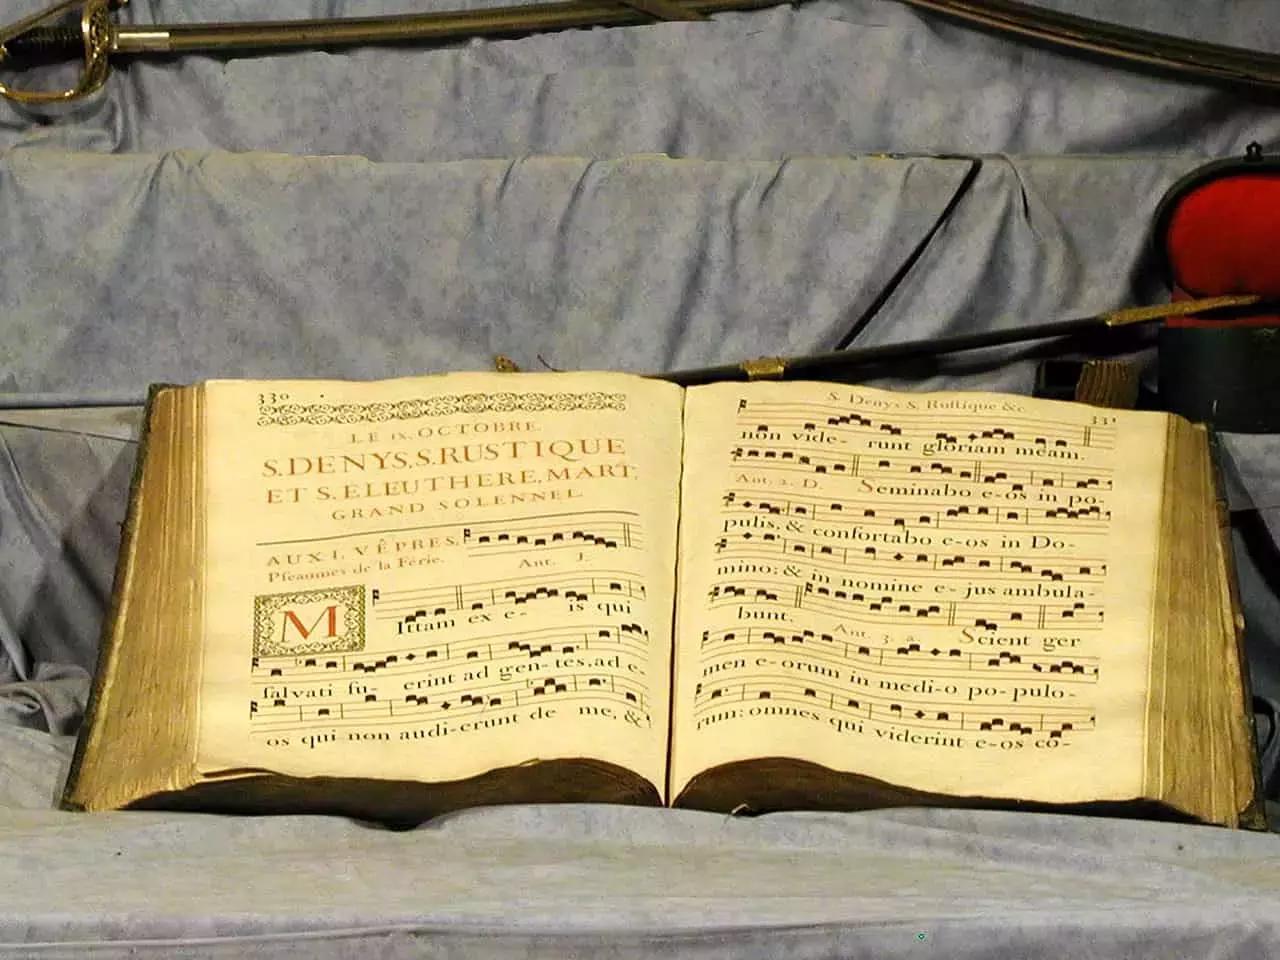 330
LE IX. OCTOBRE.
S. DENYS, S. RUSTIQUE
ET S. ELEUTHERE, MART.
GRAND SOLENNEL.
AUX I. VÊPRES,
Pseaumes de la Férie.
Ant. 1.
MIttam ex e- is qui
salvati fu- erint ad gen-tes, ad e-
os qui non audi-erunt de me, &
S. Denys S. Rustique &c.
331
non vide- runt gloriam meam.
Ant. 2. D. Seminabo e-os in po-
pulis, & confortabo e-os in Do-
mino: & in nomine e-jus ambula-
bunt. Ant. 3. a. Scient ger
men e-orum in medi-o po-pulo-
rum: omnes qui viderint e-os co-